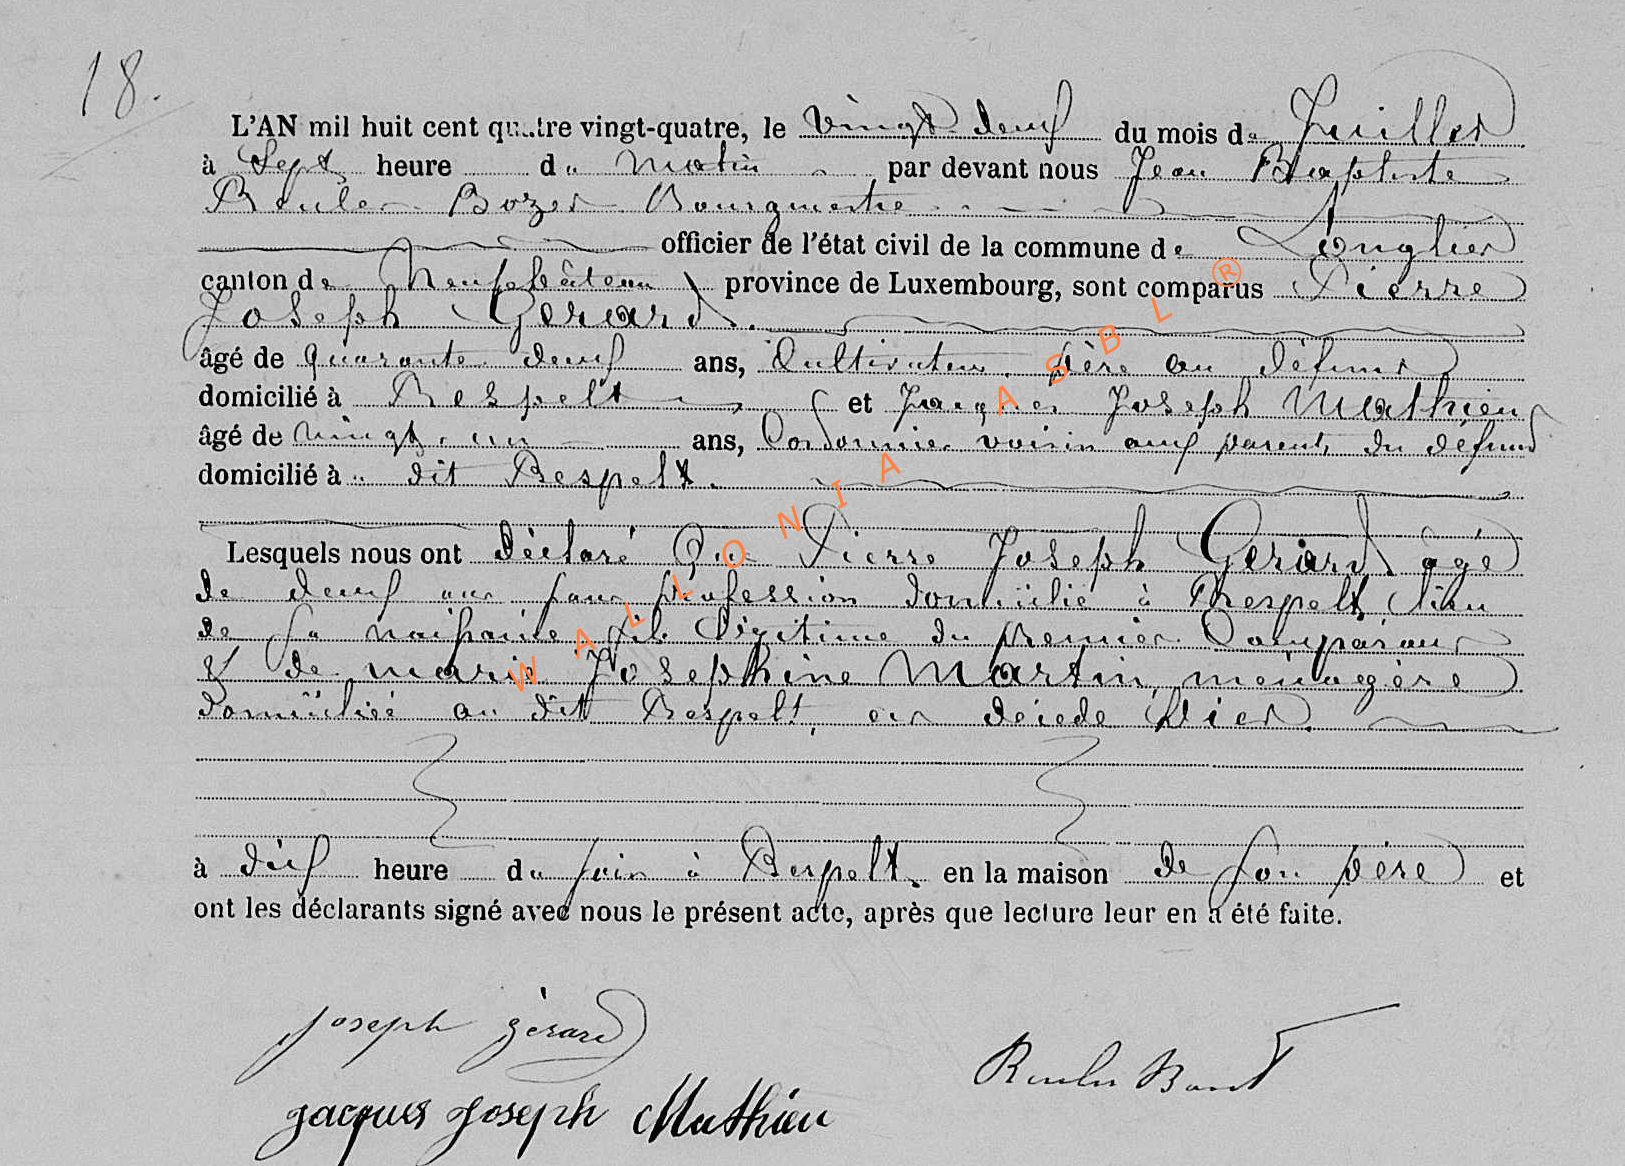 18.
L'AN mil huit cent quatre vingt-quatre, le vingt deux du mois de Juillet
à Sept heure du matin par devant nous Jean Baptiste
Bourgmestre
officier de l'état civil de la commune de Longlier
canton de Neufchâteau province de Luxembourg, sont comparus Pierre
Joseph Gerard.
âgé de quarante deux ans, Cultivateur, père au défunt
domicilié à Respelt et Jacques Joseph Mathieu
âgé de vingt un ans, Cordonnier voisin aux parents du défunt
domicilié à dit Respelt.
Lesquels nous ont déclaré Que Pierre Joseph Gerard âgé
de deux ans sans profession domicilié à Respelt, lieu
de sa naissance fils légitime du premier Comparant
& de marie Josephine Martin, ménagère
domiciliée au dit Respelt, est décédé hier
à dix heure du soir à Respelt. en la maison de son père et
ont les déclarants signé avec nous le présent acte, après que lecture leur en a été faite.
joseph gérard
jacques joseph Mathieu
WALLONIA ASBL ®